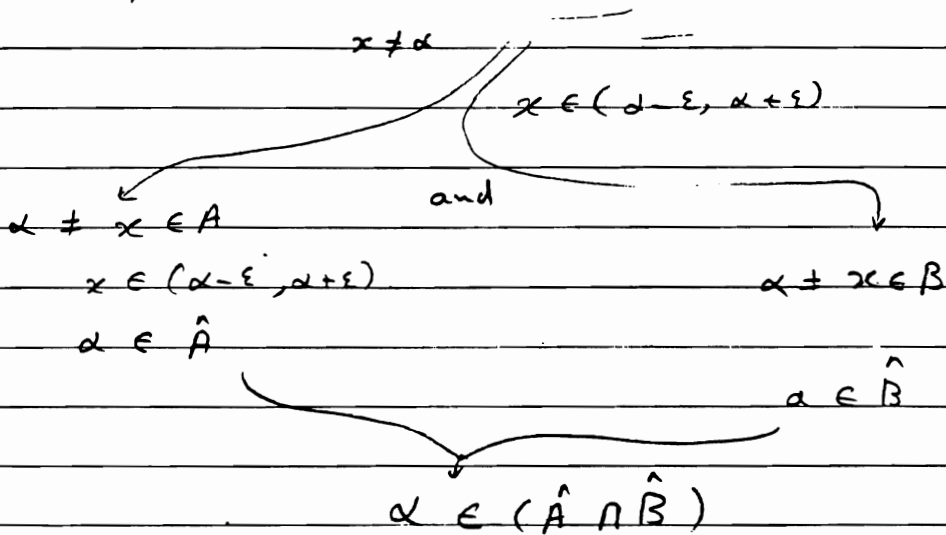 x ≠ α
x ∈ (α-ε, α+ε)
and
α ≠ x ∈ A
x ∈ (α-ε, α+ε)
α ≠ x ∈ B
α ∈ Â
α ∈ B̂
α ∈ (Â ∩ B̂)